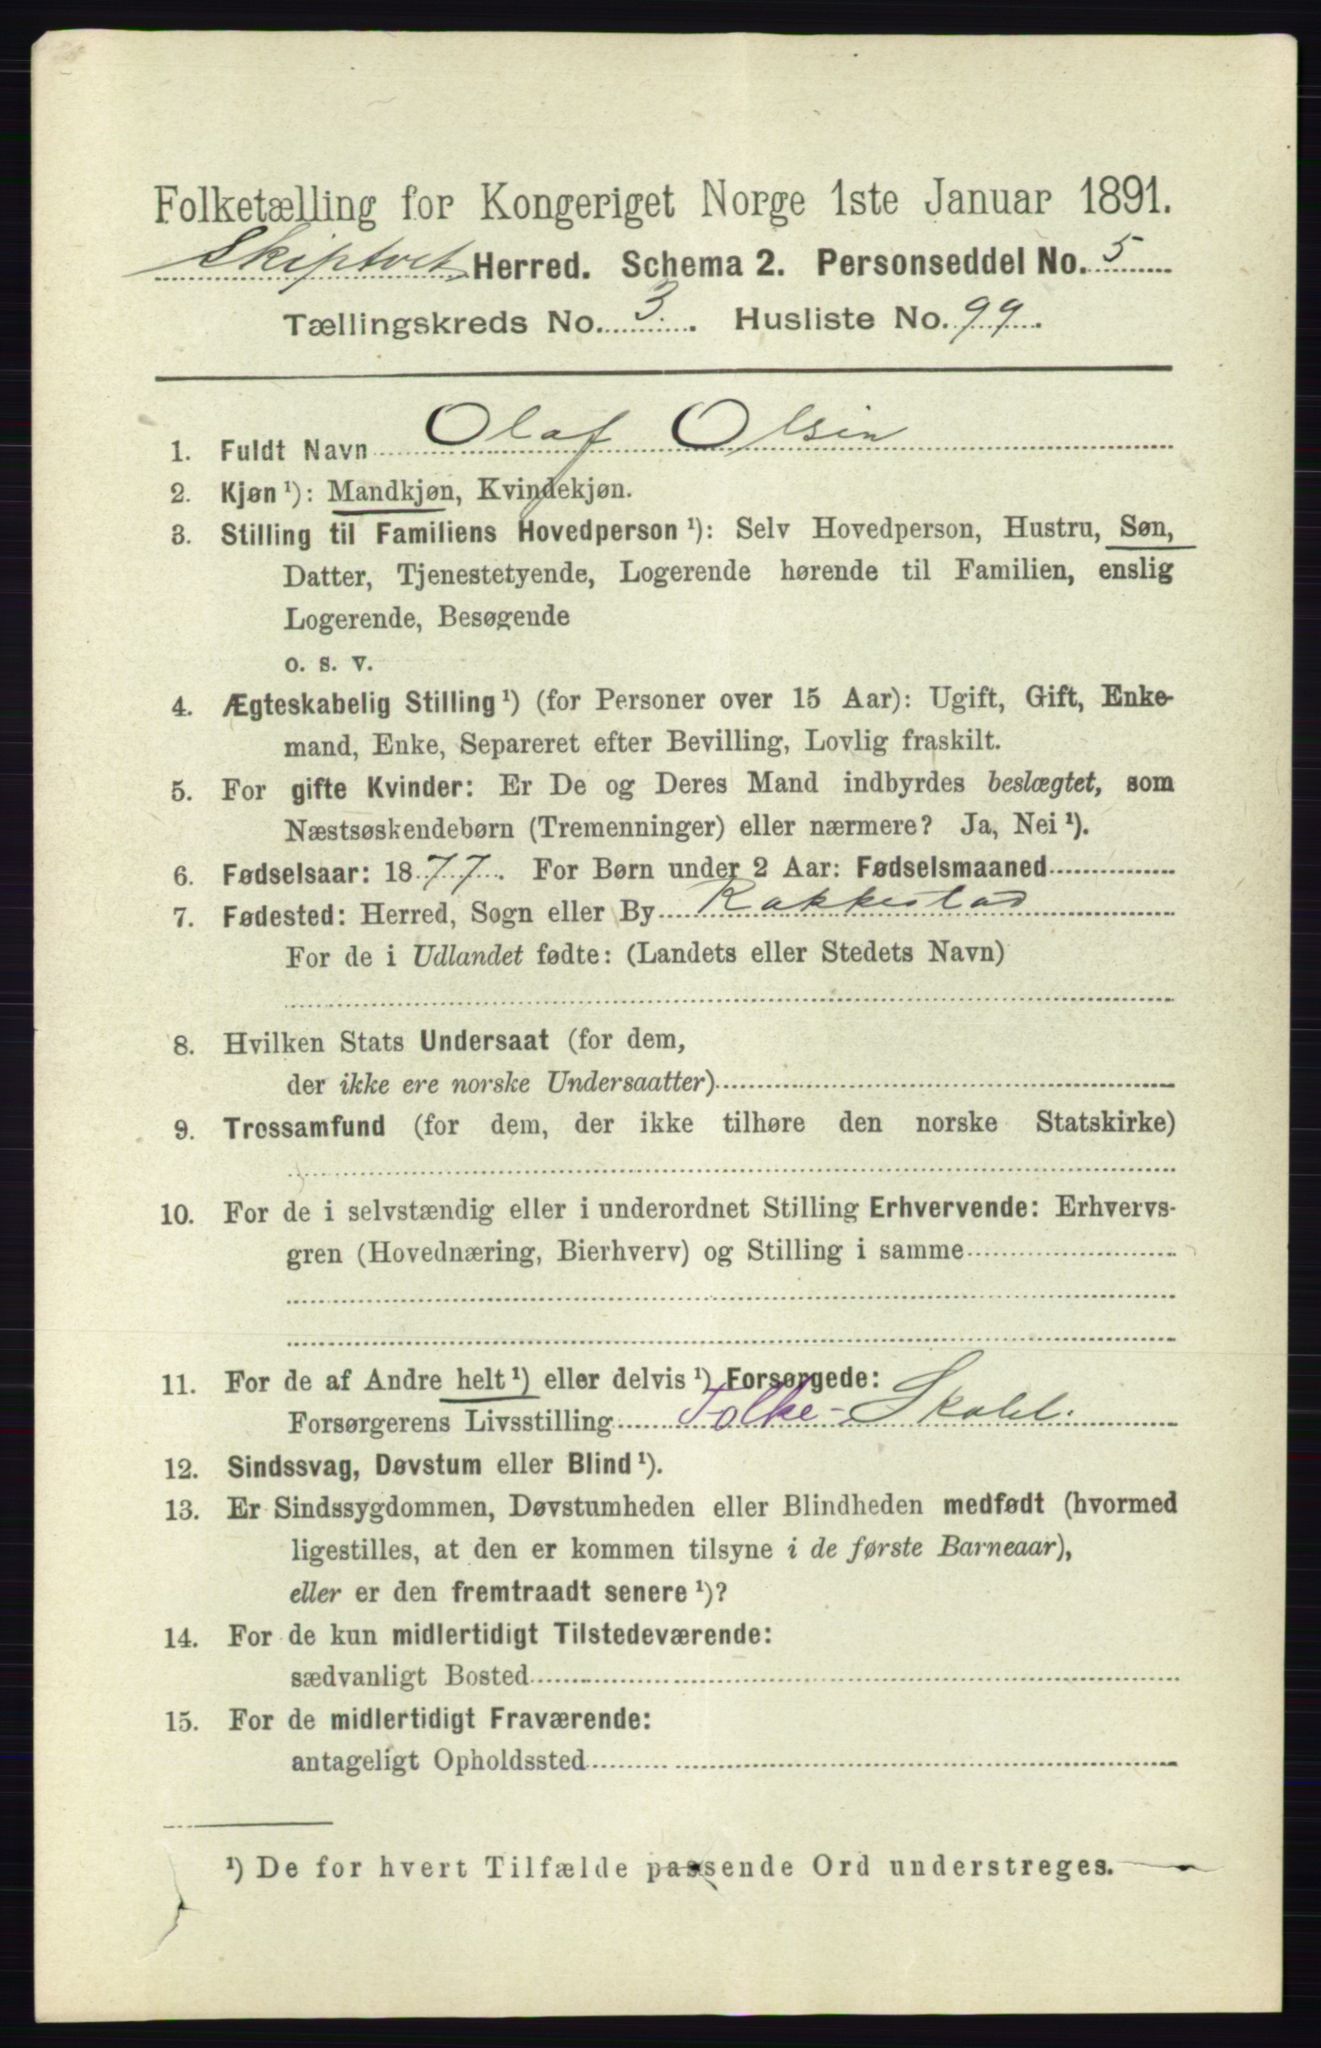 Folketælling for Kongeriget Norge 1ste Januar 1891.
Skiptvet Herred. Schema 2. Personseddel No. 5
Tællingskreds No. 3. Husliste No. 99.
1. Fuldt Navn Olaf Olsen
2. Kjøn ¹): Mandkjøn, Kvindekjøn.
3. Stilling til Familiens Hovedperson ¹): Selv Hovedperson, Hustru, Søn,
Datter, Tjenestetyende, Logerende hørende til Familien, enslig
Logerende, Besøgende
o. s. v.
4. Ægteskabelig Stilling ¹) (for Personer over 15 Aar): Ugift, Gift, Enke-
mand, Enke, Separeret efter Bevilling, Lovlig fraskilt.
5. For gifte Kvinder: Er De og Deres Mand indbyrdes beslægtet, som
Næstsøskendebørn (Tremenninger) eller nærmere? Ja, Nei ¹).
6. Fødselsaar: 1877. For Børn under 2 Aar: Fødselsmaaned
7. Fødested: Herred, Sogn eller By Rakkestad
For de i Udlandet fødte: (Landets eller Stedets Navn)
8. Hvilken Stats Undersaat (for dem,
der ikke ere norske Undersaatter)
9. Trossamfund (for dem, der ikke tilhøre den norske Statskirke)
10. For de i selvstændig eller i underordnet Stilling Erhvervende: Erhvervs-
gren (Hovednæring, Bierhverv) og Stilling i samme
11. For de af Andre helt ¹) eller delvis ¹) Forsørgede:
Forsørgerens Livsstilling Folke-
12. Sindssvag, Døvstum eller Blind ¹).
13. Er Sindssygdommen, Døvstumheden eller Blindheden medfødt (hvormed
ligestilles, at den er kommen tilsyne i de første Barneaar),
eller er den fremtraadt senere ¹)?
14. For de kun midlertidigt Tilstedeværende:
sædvanligt Bosted
15. For de midlertidigt Fraværende:
antageligt Opholdssted
¹) De for hvert Tilfælde passende Ord understreges.